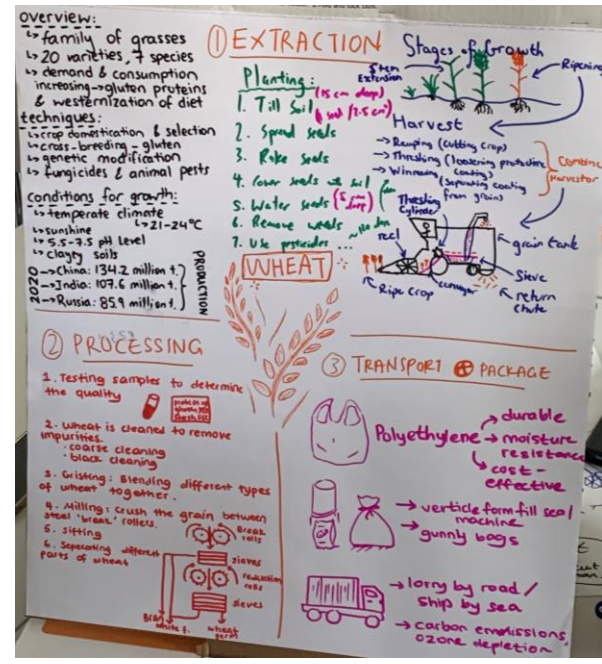 overview:
↳ family of grasses
↳ 20 varieties, 7 species
↳ demand & consumption
increasing → gluten proteins
& westernization of diet
techniques:
↳ crop domestication & selection
↳ cross-breeding - gluten
↳ genetic modification
↳ fungicides & animal pests
conditions for growth:
↳ temperate climate
↳ 21-24°C
↳ sunshine
↳ 5.5-7.5 pH Level
↳ clayey soils
2020
→ China: 134.2 million t.
→ India: 107.6 million t.
→ Russia: 85.9 million t.
PRODUCTION
① EXTRACTION
Planting:
1. Till Soil (15 cm deep)
2. Spread seeds
3. Rake seeds
4. Cover seeds with soil
5. Water seeds
6. Remove weeds
7. Use pesticides ...
WHEAT
Stages of Growth
Stem
Extension
Ripening
Harvest
→ Reaping (cutting crop)
→ Threshing (loosening protective
coating)
→ Winnowing (separating coating
from grain)
Combine
Harvestor
Threshing
Cylinder
reel
grain tank
Sieve
Ripe Crop
conveyor
return
chute
② PROCESSING
1. Testing samples to determine
the quality
2. Wheat is cleaned to remove
impurities.
· coarse cleaning
· black cleaning
3. Gristing: Blending different types
of wheat together.
4. Milling: Crush the grain between
steel 'break' rollers.
5. Sifting
6. Seperating different
parts of wheat
Break
rolls
sieves
reduction
rolls
sieves
Bran
white f.
wheat
germ
③ TRANSPORT & PACKAGE
Polyethylene
→ durable
→ moisture
resistance
→ cost-
effective
→ verticle form fill seal
machine
→ gunny bags
→ lorry by road /
ship by sea
→ carbon emmissions,
ozone depletion